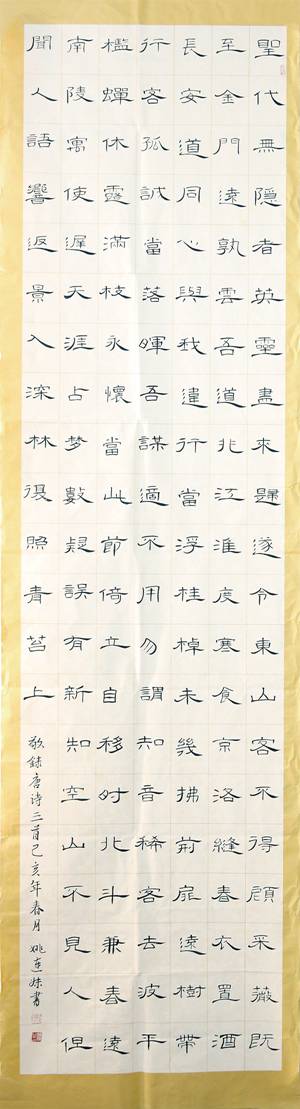 聖代無隱者英靈盡來歸遂令東山客不得顧采薇既
至金門遠孰雲吾道非江淮度寒食京洛縫春衣置酒
長安道同心與我違行當浮桂棹未幾拂荊扉遠樹帶
行客孤誠當落暉吾謀適不用勿謂知音稀客去波平
檻蟬休露滿枝永懷當此節倚立自移時北斗兼春遠
南陵寓使遲天涯占梦數疑誤有新知空山不見人但
聞人語響返景入深林復照青苔上
敬録唐诗三首己亥年春月 姚連妹書